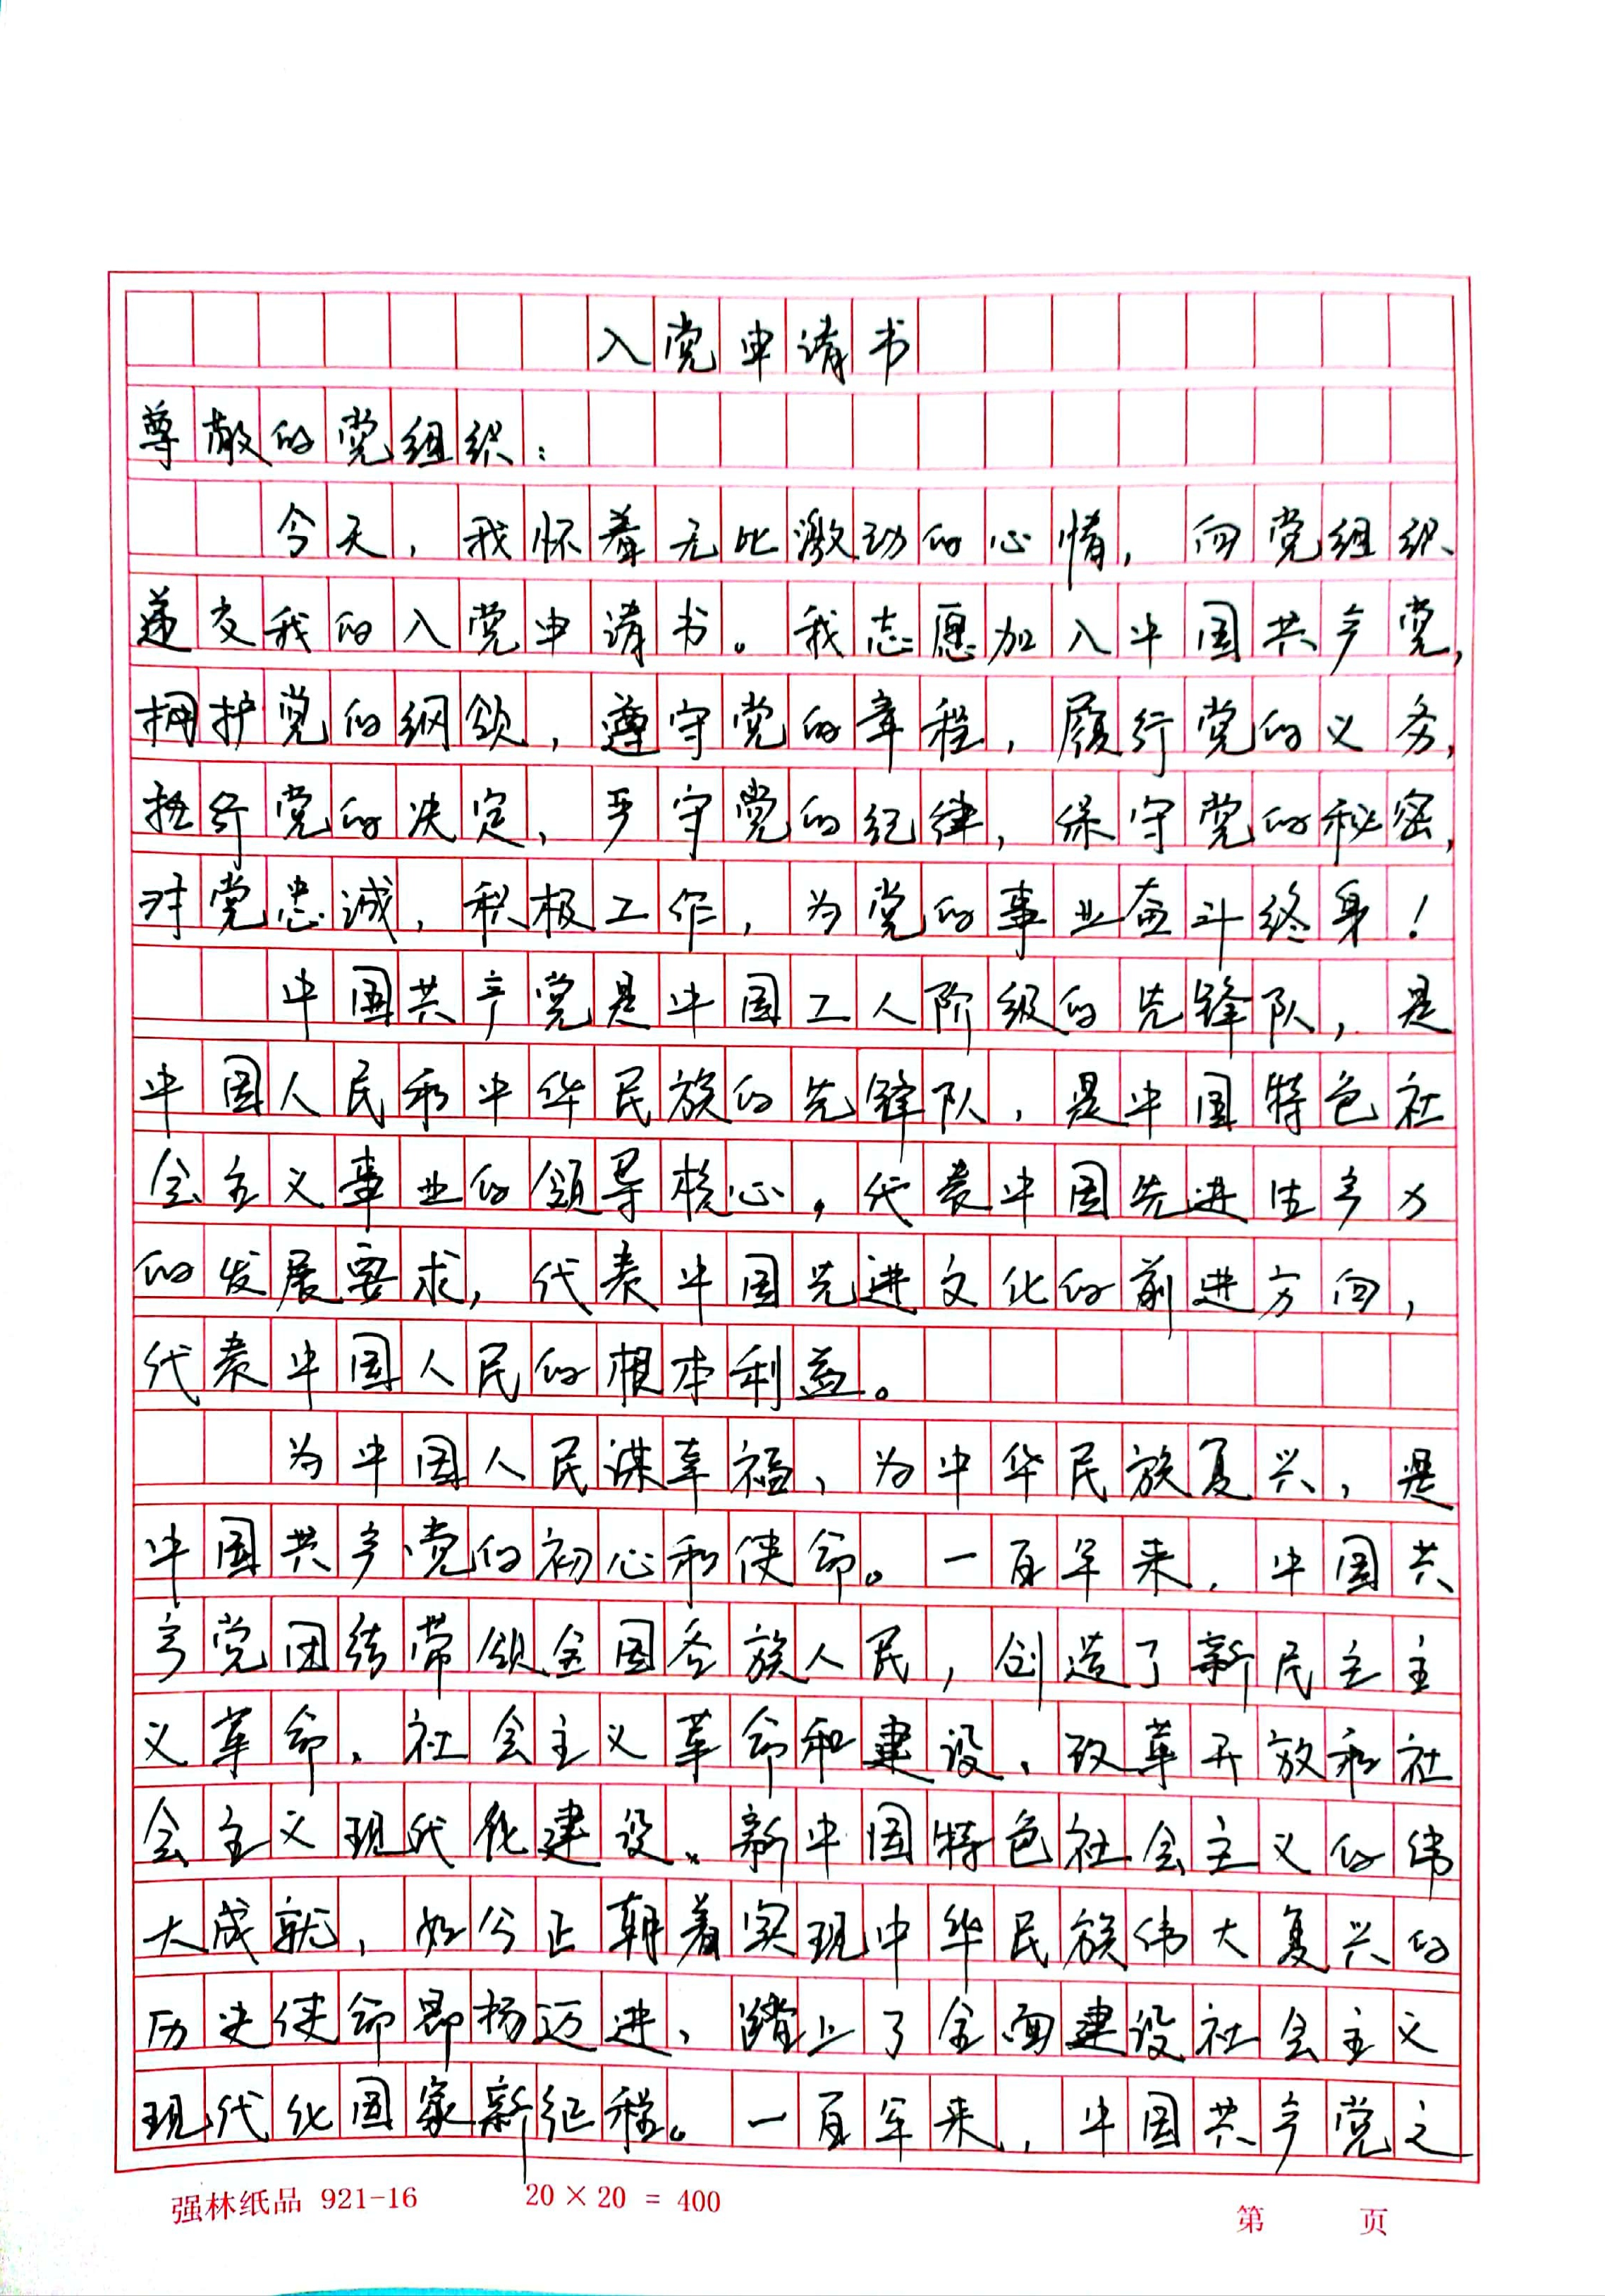 入党申请书
尊敬的党组织：
今天，我怀着无比激动的心情，向党组织
递交我的入党申请书。我志愿加入中国共产党，
拥护党的纲领，遵守党的章程，履行党的义务，
执行党的决定，严守党的纪律，保守党的秘密，
对党忠诚，积极工作，为党的事业奋斗终身！
中国共产党是中国工人阶级的先锋队，是
中国人民和中华民族的先锋队，是中国特色社
会主义事业的领导核心，代表中国先进生产力
的发展要求，代表中国先进文化的前进方向，
代表中国人民的根本利益。
为中国人民谋幸福，为中华民族复兴，是
中国共产党的初心和使命。一百年来，中国共
产党团结带领全国各族人民，创造了新民主主
义革命、社会主义革命和建设、改革开放和社
会主义现代化建设、新中国特色社会主义的伟
大成就，如今正朝着实现中华民族伟大复兴的
历史使命昂扬迈进，踏上了全面建设社会主义
现代化国家新征程。一百年来，中国共产党之
强林纸品 921-16 20×20=400 第 页